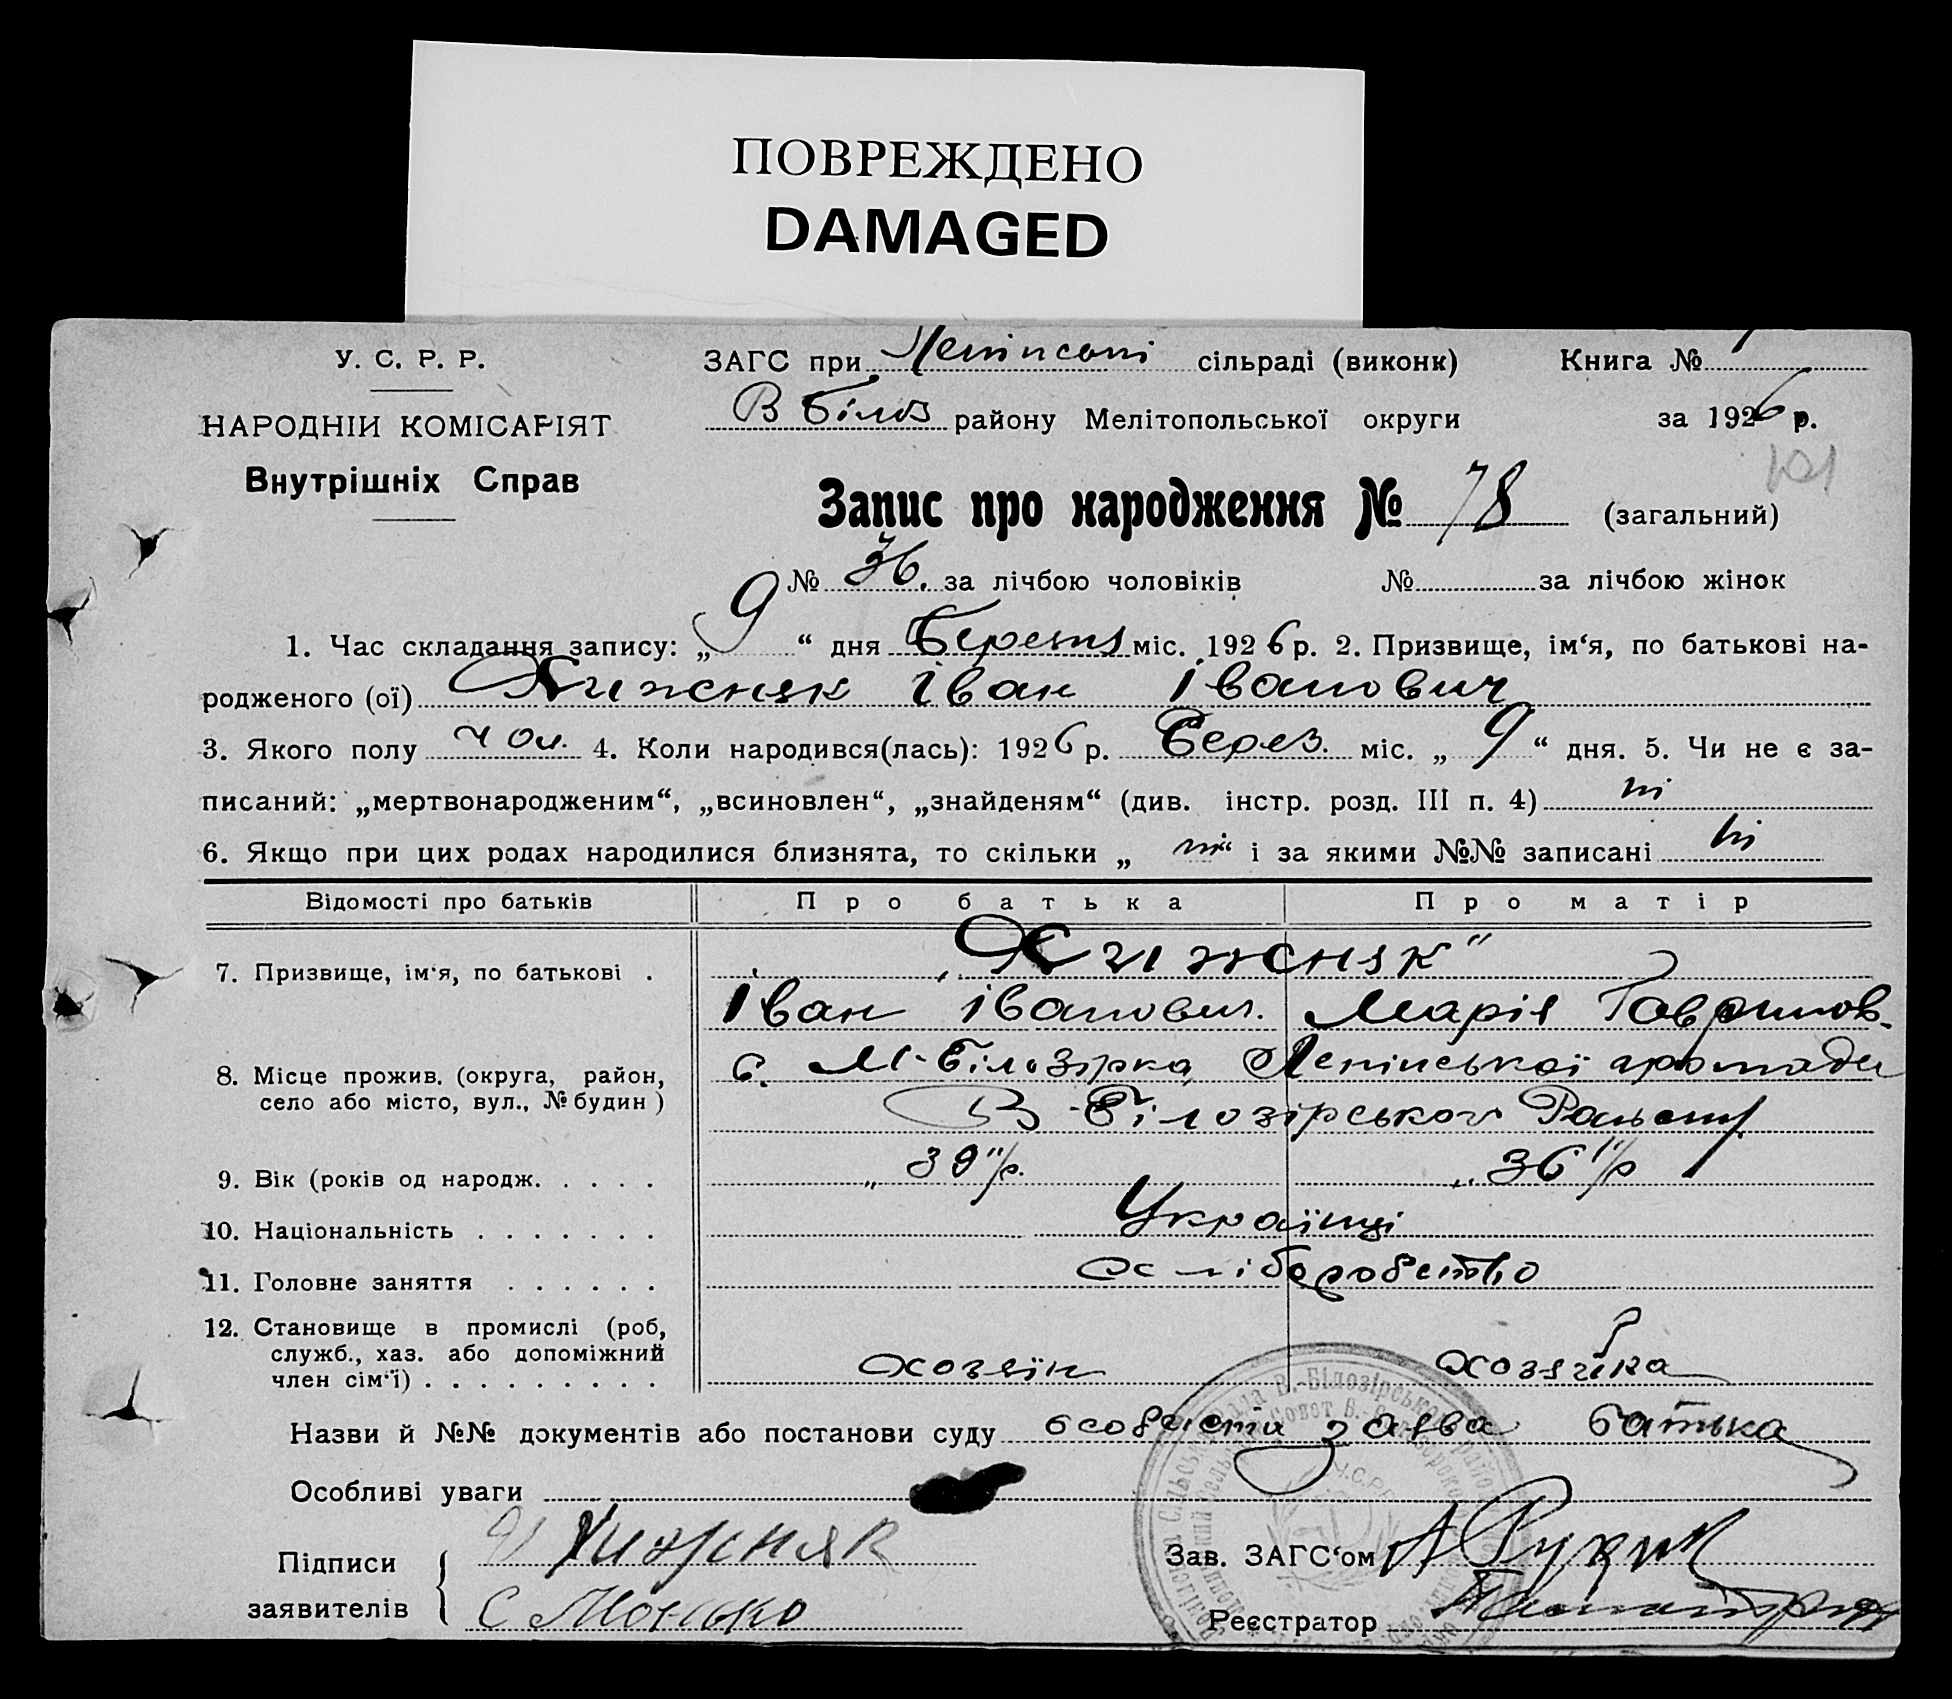 ПОВРЕЖДЕНО
DAMAGED
У. С. Р. Р.
НАРОДНІЙ КОМІСАРІЯТ
Внутрішніх Справ
ЗАГС при Ленінські сільраді (виконк) Книга № 1
В Білоз району Мелітопольської округи за 1926 р.
101
Запис про народження № 78 (загальний)
№ 36. за лічбою чоловіків № за лічбою жінок
1. Час складання запису: „ 9 “ дня Березня міс. 1926 р. 2. Призвище, ім‘я, по батькові на-
родженого (ої) Хижняк Іван Іванович
3. Якого полу чол. 4. Коли народився(лась): 1926 р. Берез. міс. „ 9 “ дня. 5. Чи не є за-
писаний: „мертвонародженим“, „всиновлен“, „знайденям“ (див. інстр. розд. III п. 4) ні
6. Якщо при цих родах народилися близнята, то скільки „ ні “ і за якими №№ записані ні
Відомості про батьків Про батька Про матір
7. Призвище, ім‘я, по батькові . Хижняк
Іван Іванович. Марія Гаврилов.
8. Місце прожив. (округа, район, село або місто, вул., № будин) с. М-Білозірка Ленінської громади
В-Білозірського
9. Вік (років од народж. . . . . „39“/р. „36“/р
10. Національність . . . . . . . Українці
11. Головне заняття . . . . . . Хліборобство
12. Становище в промислі (роб,
служб., хаз. або допоміжний
член сім‘ї) . . . . . . . . . хозяїн хозяйка
Назви й №№ документів або постанови суду особиста заява батька
Особливі уваги
Підписи заявителів Хижняк
С Монько
Зав. ЗАГС‘ом А
Реєстратор